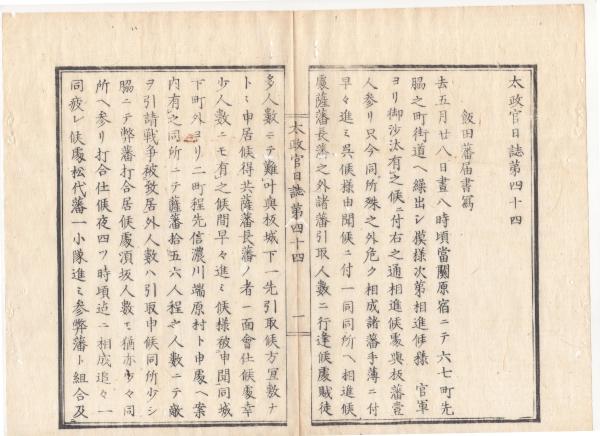 太政官日誌第四十四
飯田藩届書冩
去五月廿八日晝八時頃當關原宿ニテ六七町先
脇之町街道ヘ繰出シ模様次第相進候様 官軍
ヨリ御沙汰有之候ニ付右之通相進候處與板藩壹
人參リ只今同所殊之外危ク相成諸藩手薄ニ付
早々進ミ呉候様由聞候ニ付一同同所ヘ相進候
處薩藩長藩之外諸藩引取人數ニ行逢候處賊徒
太政官日誌第四十四 一
多人數ニテ難叶與板城下一先引取候方冝敷ナ
トミ申居候得共薩藩長藩ノ者一面會仕候處幸
少人數ニモ有之候間早々進ミ候様被申聞同城
下町外ヨリ二町程先信濃川端原村ト申處ヘ案
内有之同所ニテ薩藩拾五六人程之人數ニテ敵
ヲ引請戰爭被致居外人數ハ引取申候同所少シ
脇ニテ弊藩打合居候處須坂人數モ痛亦少々同
所ヘ參リ打合仕候夜四ツ時頃迠ニ相成追々一
同疲レ候處松代藩一小隊進ミ參弊藩ト組合及